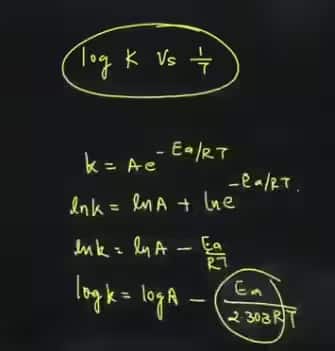 log K Vs 1/T
k = Ae^-Ea/RT
lnk = lnA + lne^-Ea/RT.
lnk = lnA - Ea/RT
logk = logA - Ea/2.303RT